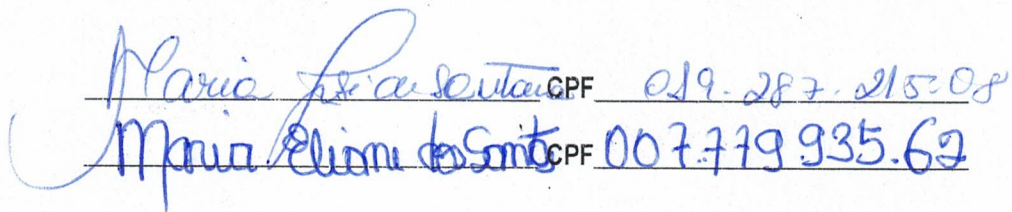 Maria Santana CPF 019.287.215-08
Maria Eliane dos Santos CPF 007.779935.62